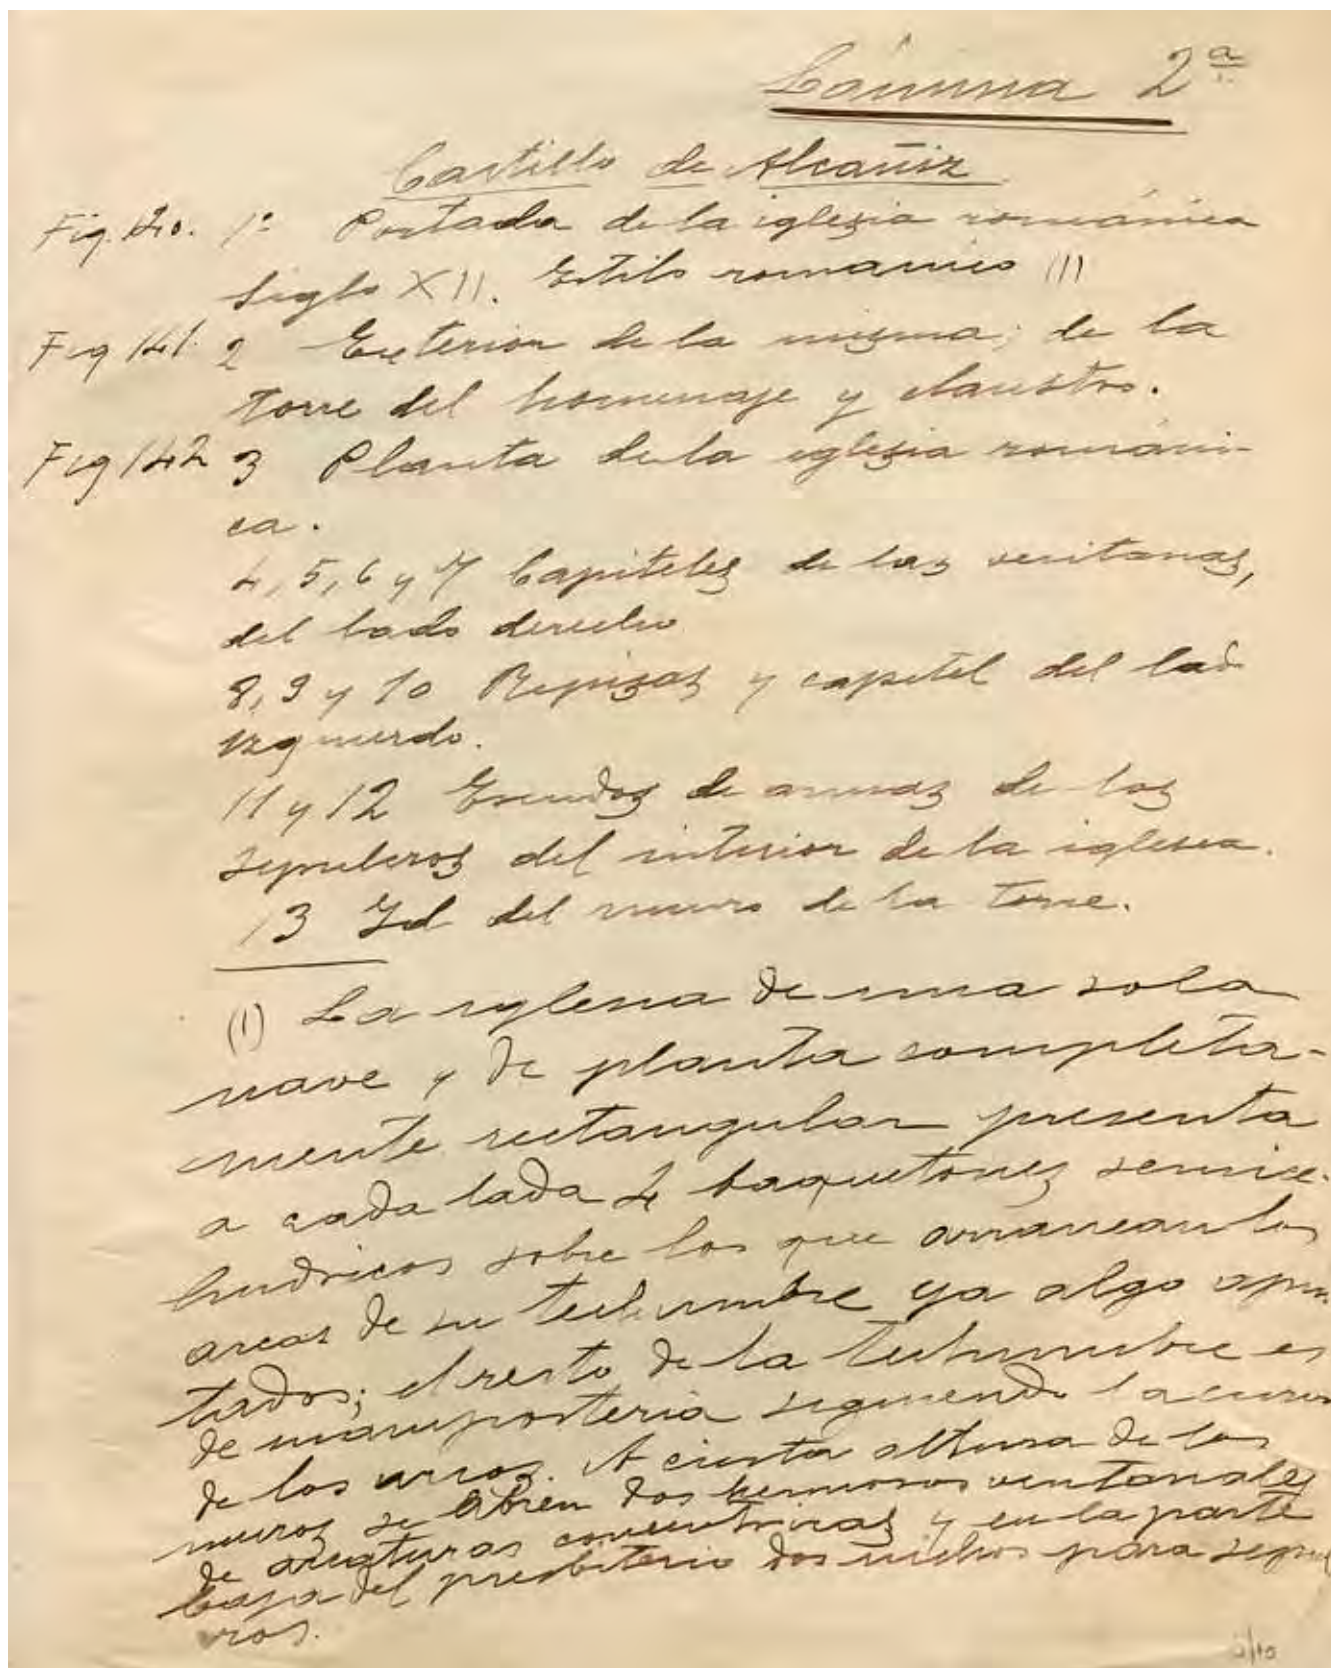 Lámina 2ª
Castillo de Alcañiz
Fig. 140. 1º Portada de la iglesia románica
Siglo XII. Estilo romanico (1)
Fig 141. 2 Exterior de la misma; de la
torre del homenaje y claustro.
Fig 142 3 Planta de la iglesia románi-
ca.
4, 5, 6 y 7 Capiteles de las ventanas,
del lado derecho
8, 9 y 10 Repisas y capitel del lado
izquierdo.
11 y 12 Escudos de armas de los
sepulcros del interior de la iglesia.
13 Id del muro de la torre.
(1) La iglesia de una sola
nave y de planta completa-
mente rectangular presenta
a cada lado 4 baquetones semici-
lindricos sobre los que arrancan los
arcos de su techumbre ya algo apun
tados; el resto de la techumbre es
de mamposteria siguiendo la curva
de los arcos. A cierta altura de los
muros se abren dos hermosos ventanales
de arcaturas concentricas y en la parte
baja del presbiterio dos nichos para sepul
ros.